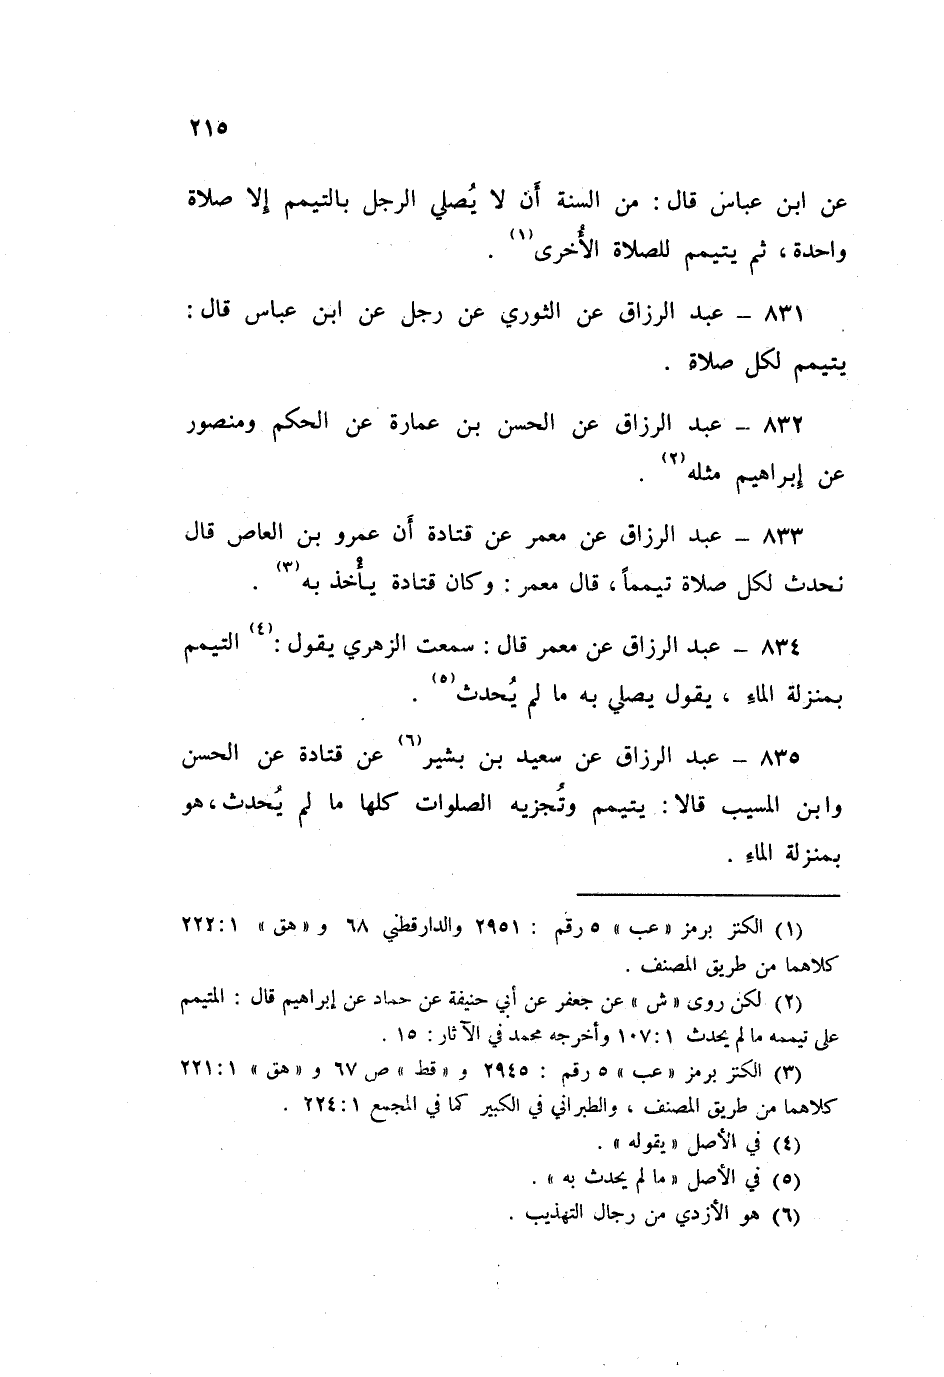 ٢١٥
عن ابن عباس قال : من السنة أَن لا يُصلي الرجل بالتيمم إِلا صلاة
واحدة ، ثم يتيمم للصلاة الأُخرى(١) .
٨٣١ – عبد الرزاق عن الثوري عن رجل عن ابن عباس قال :
يتيمم لكل صلاة .
٨٣٢ – عبد الرزاق عن الحسن بن عمارة عن الحكم ومنصور
عن إِبراهيم مثله(٢) .
٨٣٣ – عبد الرزاق عن معمر عن قتادة أَن عمرو بن العاص قال
نحدث لكل صلاة تيمماً ، قال معمر : وكان قتادة يأْخذ به(٣) .
٨٣٤ – عبد الرزاق عن معمر قال : سمعت الزهري يقول :(٤) التيمم
بمنزلة الماءِ ، يقول يصلي به ما لم يُحدث(٥) .
٨٣٥ – عبد الرزاق عن سعيد بن بشير(٦) عن قتادة عن الحسن
وابن المسيب قالا : يتيمم وتُجزيه الصلوات كلها ما لم يُحدث ، هو
بمنزلة الماءِ .
(١) الكنز برمز « عب » ٥ رقم : ٢٩٥١ والدارقطني ٦٨ و « هق » ١ : ٢٢٢
كلاهما من طريق المصنف .
(٢) لكن روى « ش » عن جعفر عن أبي حنيفة عن حماد عن إبراهيم قال : المتيمم
على تيممه ما لم يحدث ١ : ١٠٧ وأخرجه محمد في الآثار : ١٥ .
(٣) الكنز برمز « عب » ٥ رقم : ٢٩٤٥ و « قط » ص ٦٧ و « هق » ١ : ٢٢١
كلاهما من طريق المصنف ، والطبراني في الكبير كما في المجمع ١ : ٢٢٤ .
(٤) في الأصل « يقوله » .
(٥) في الأصل « ما لم يحدث به » .
(٦) هو الأزدي من رجال التهذيب .